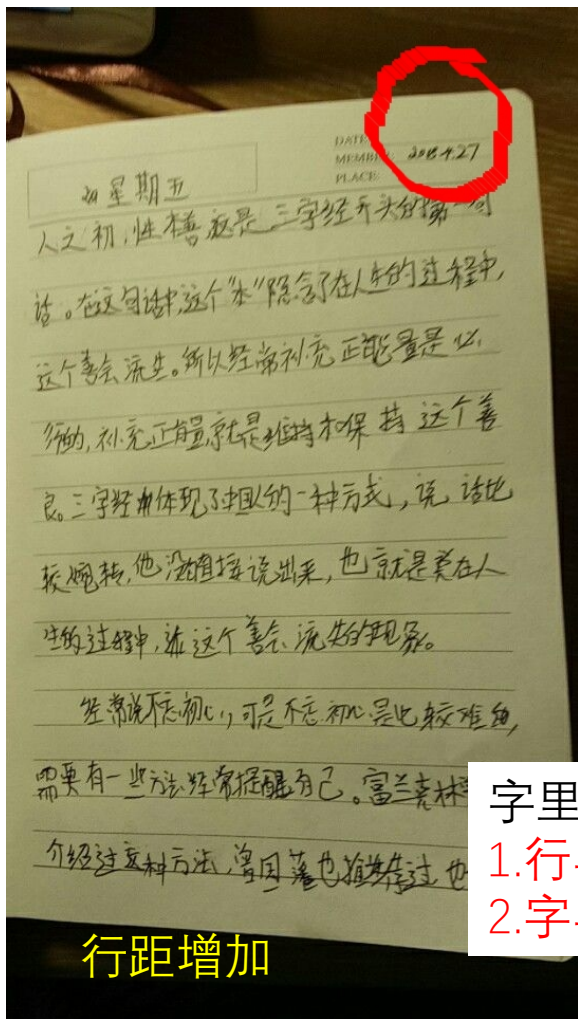 DATE
MEMBER: 2018.4.27
PLACE:
星期五
人之初，性本善 就是 三字经开头的第一句
话。在这句话中,这个"本"隐含了在人生的过程中,
这个善会流失。所以经常补充正能量是必
须的,补充正能量,就是维持和保 持 这个善
良。三字经 体现了中国人的一种方式，说 话比
较婉转,他没有直接说出来，也就是 在人
生的过程中, 这个善会 流失的现象。
经常说不忘初心，可是不忘初心是比较难的,
需要有一些方法经常提醒自己。富兰克林
介绍过 种方法,曾国藩也推荐过 也
字里
1.行
2.字
行距增加